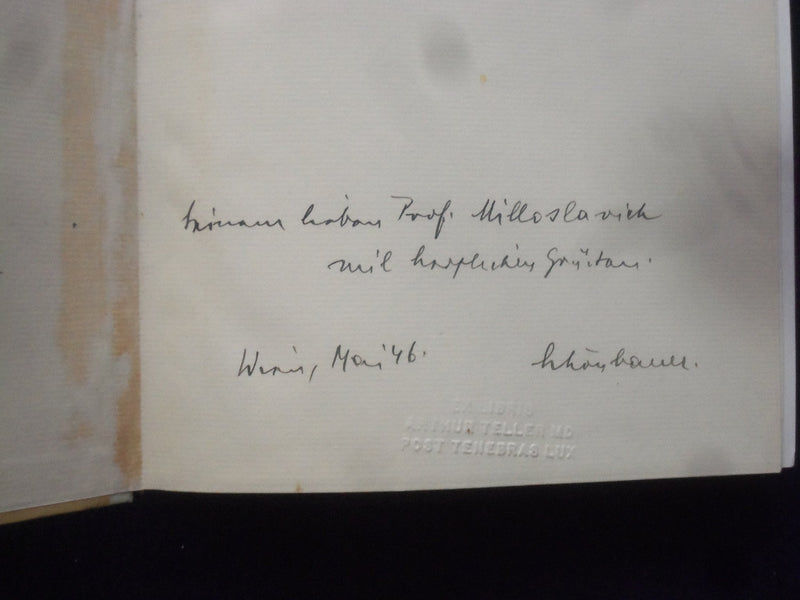 Seinem lieben Prof. Milloslavich
mit herzlichen Grüßen.
Wien, Mai 46.
Schönbauer.
EX LIBRIS
ARTHUR TELLER MD
POST TENEBRAS LUX